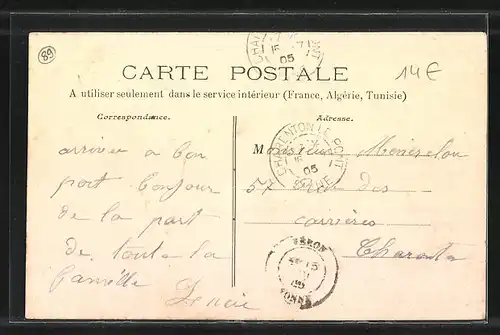 89
CARTE POSTALE
14 €
A utiliser seulement dans le service intérieur (France, Algérie, Tunisie)
Correspondance.
Adresse.
arrivée a bon
port bonjour
de la part
de toute la
famille
Lucie
Monsieur
57 rue des
carrières
Charenton
CHARENTON LE PONT
05
SEINE
VERON
15
YONNE